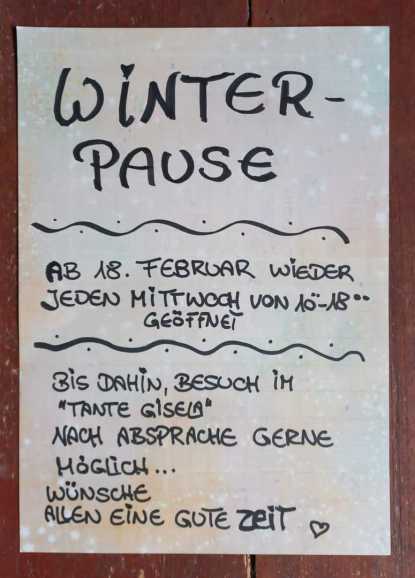 WINTER-
PAUSE
AB 18. FEBRUAR WIEDER
JEDEN MITTWOCH VON 10-18°°
GEÖFFNET
BIS DAHIN, BESUCH IM
"TANTE GISELA"
NACH ABSPRACHE GERNE
MÖGLICH...
WÜNSCHE
ALLEN EINE GUTE ZEIT ♡